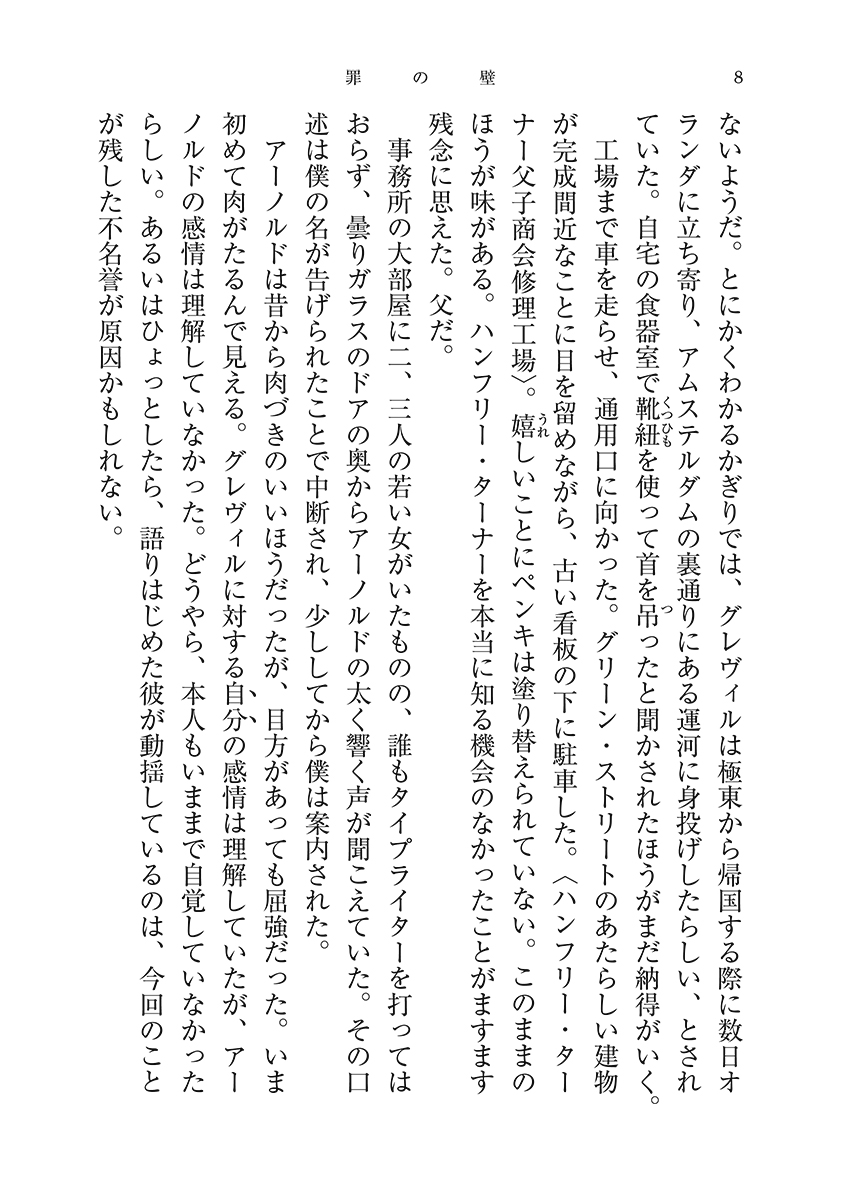 罪の壁
8
ないようだ。とにかくわかるかぎりでは、グレヴィルは極東から帰国する際に数日オ
ランダに立ち寄り、アムステルダムの裏通りにある運河に身投げしたらしい、とされ
ていた。自宅の食器室で靴紐を使って首を吊ったと聞かされたほうがまだ納得がいく。
くつひも
つ
工場まで車を走らせ、通用口に向かった。グリーン・ストリートのあたらしい建物
が完成間近なことに目を留めながら、古い看板の下に駐車した。〈ハンフリー・ター
ナー父子商会修理工場〉。嬉しいことにペンキは塗り替えられていない。このままの
うれ
ほうが味がある。ハンフリー・ターナーを本当に知る機会のなかったことがますます
残念に思えた。父だ。
事務所の大部屋に二、三人の若い女がいたものの、誰もタイプライターを打っては
おらず、曇りガラスのドアの奥からアーノルドの太く響く声が聞こえていた。その口
述は僕の名が告げられたことで中断され、少ししてから僕は案内された。
アーノルドは昔から肉づきのいいほうだったが、目方があっても屈強だった。いま
初めて肉がたるんで見える。グレヴィルに対する自分の感情は理解していたが、アー
ノルドの感情は理解していなかった。どうやら、本人もいままで自覚していなかった
らしい。あるいはひょっとしたら、語りはじめた彼が動揺しているのは、今回のこと
が残した不名誉が原因かもしれない。